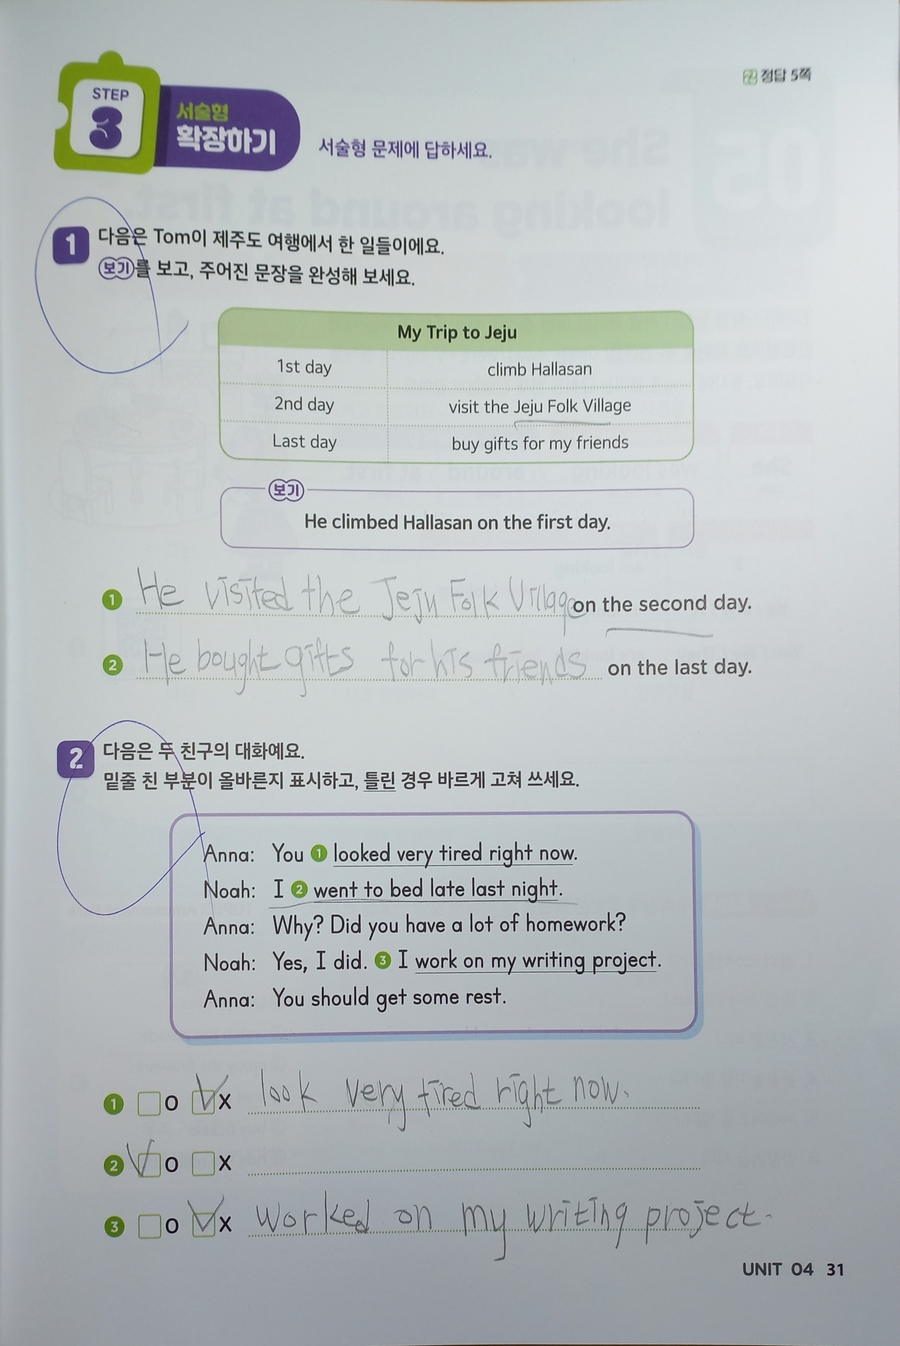 정답 5쪽
STEP
3
서술형
확장하기
서술형 문제에 답하세요.
1 다음은 Tom이 제주도 여행에서 한 일들이에요.
보기를 보고, 주어진 문장을 완성해 보세요.
My Trip to Jeju
1st day climb Hallasan
2nd day visit the Jeju Folk Village
Last day buy gifts for my friends
보기
He climbed Hallasan on the first day.
1 He visited the Jeju Folk Village on the second day.
2 He bought gifts for his friends on the last day.
2 다음은 두 친구의 대화예요.
밑줄 친 부분이 올바른지 표시하고, 틀린 경우 바르게 고쳐 쓰세요.
Anna: You 1 looked very tired right now.
Noah: I 2 went to bed late last night.
Anna: Why? Did you have a lot of homework?
Noah: Yes, I did. 3 I work on my writing project.
Anna: You should get some rest.
1 O X look very tired right now.
2 O X
3 O X worked on my writing project.
UNIT 04 31